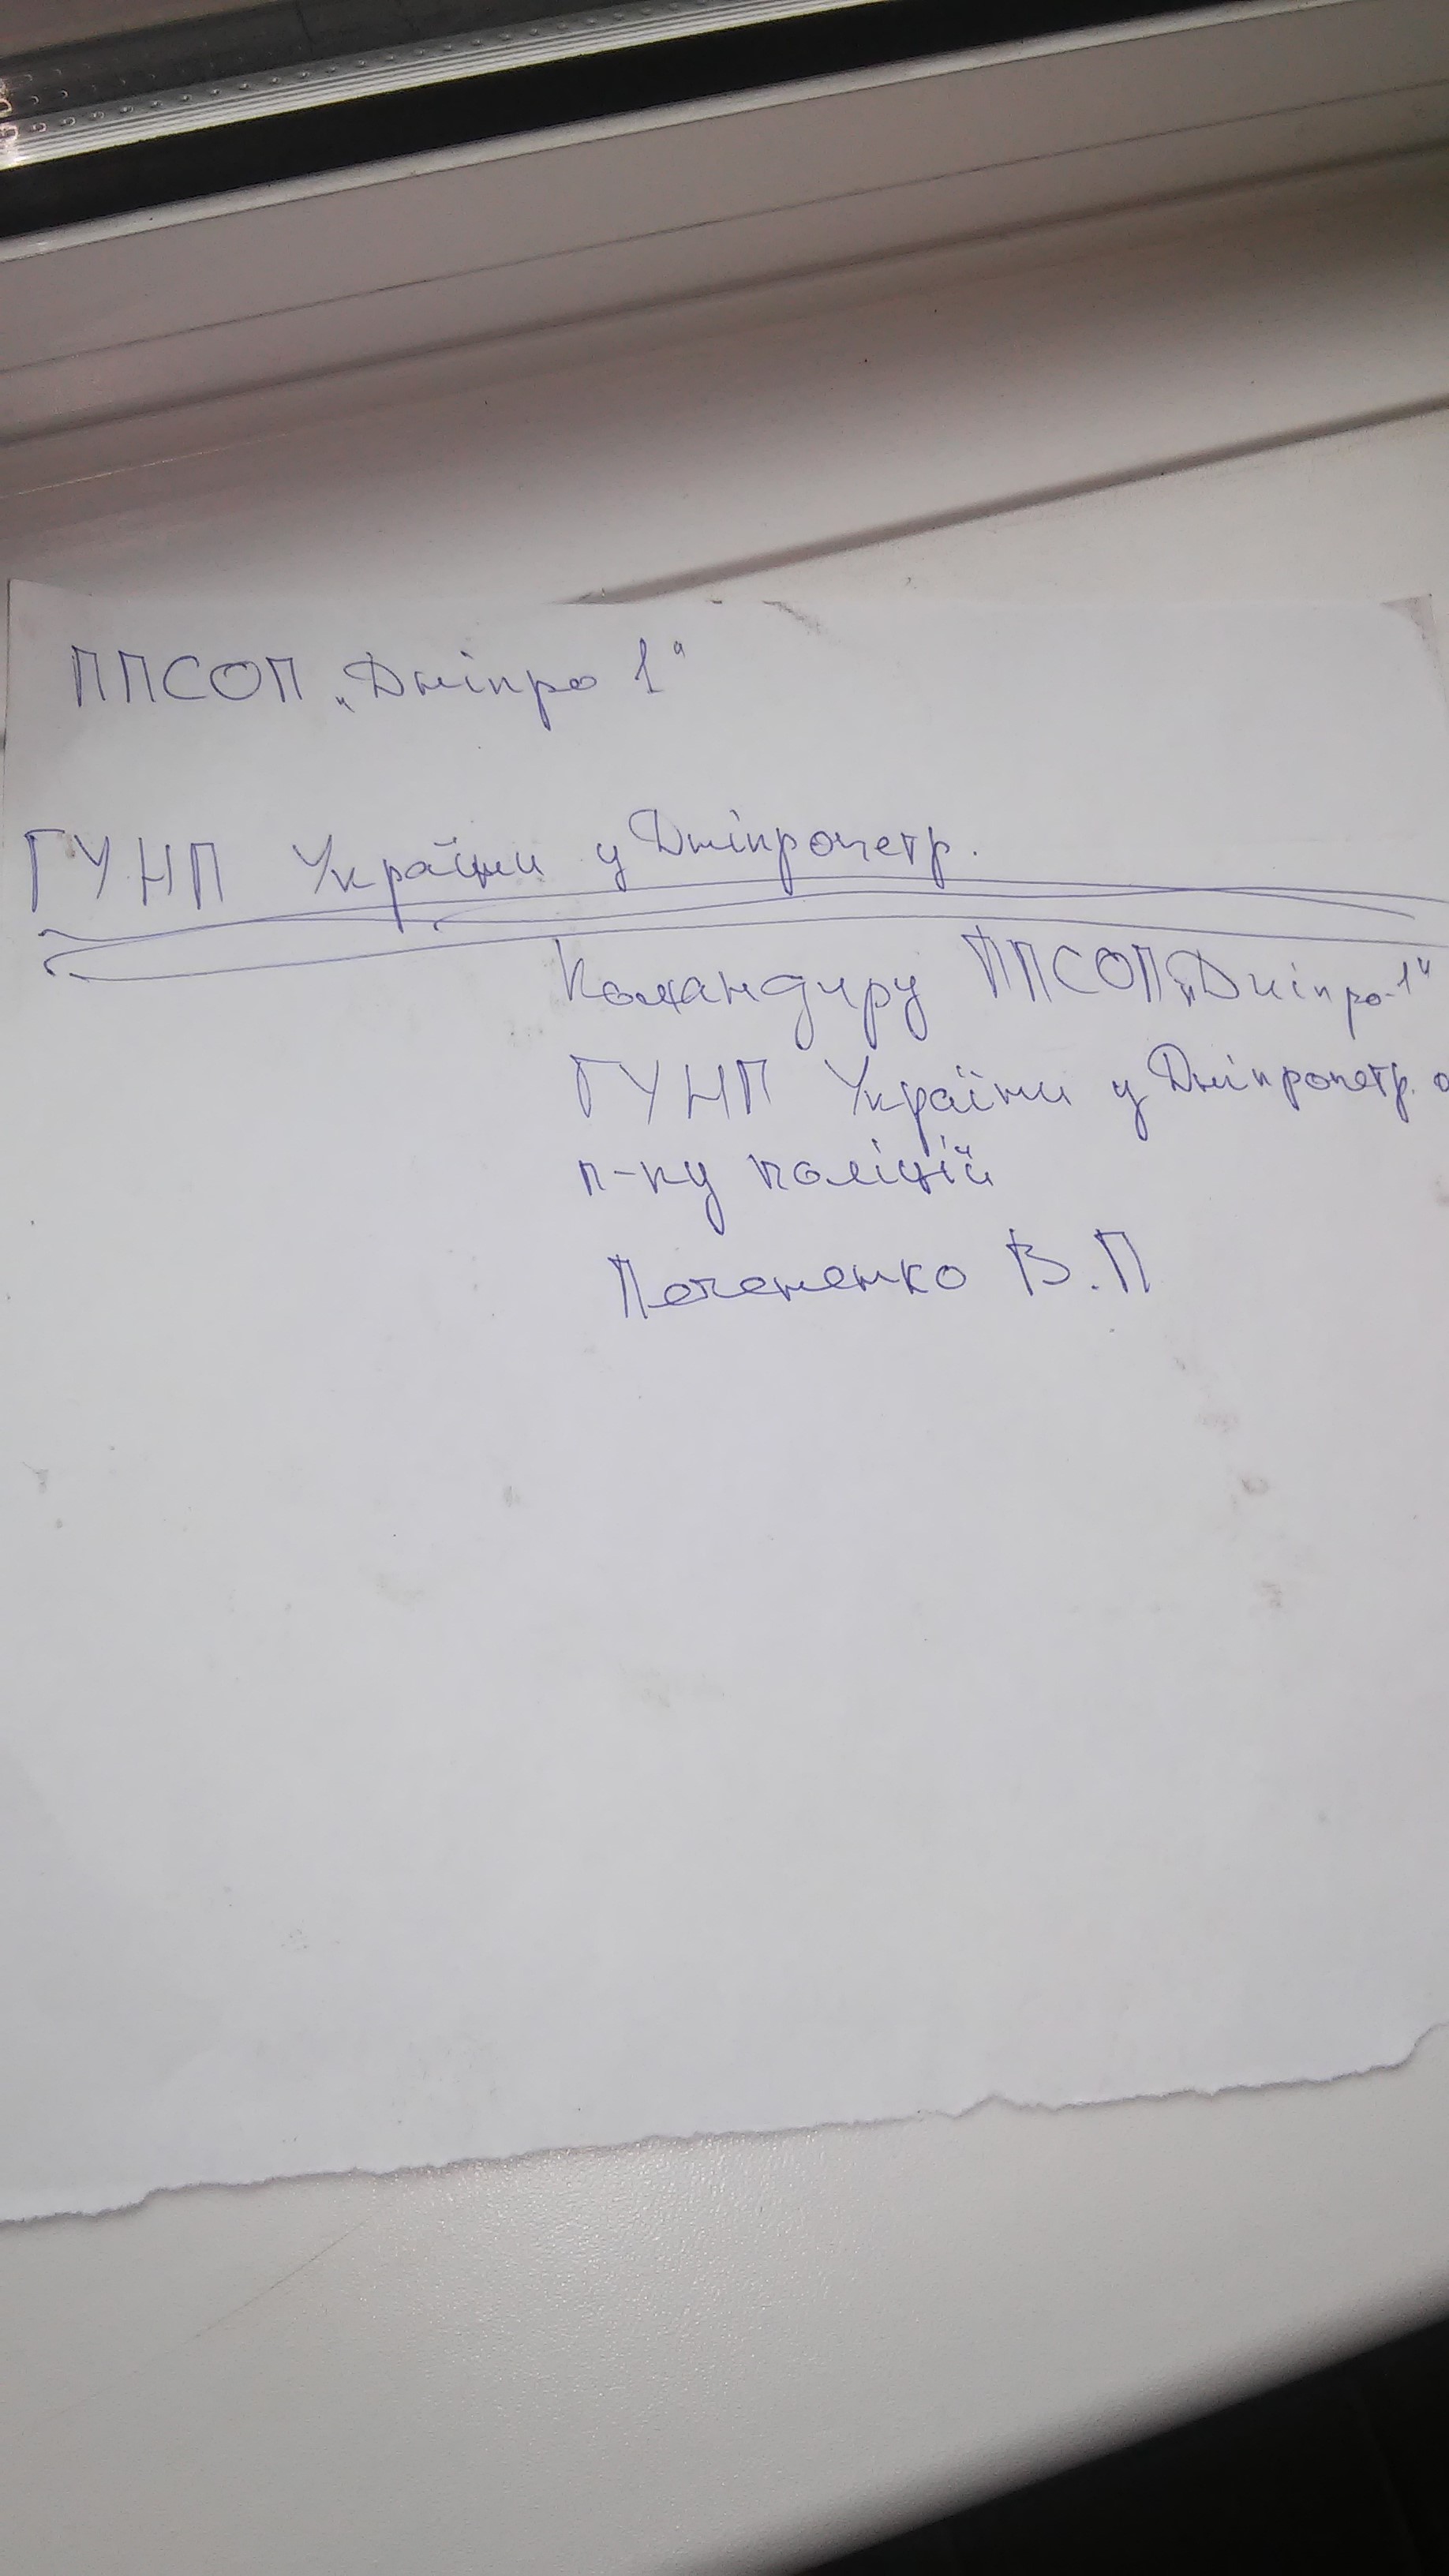 ППСОП „Дніпро 1“
ГУНП України у Дніпропетр.
Командиру ППСОП „Дніпро-1“
ГУНП України у Дніпропетр. о
п-ку поліції
Печененко В.П